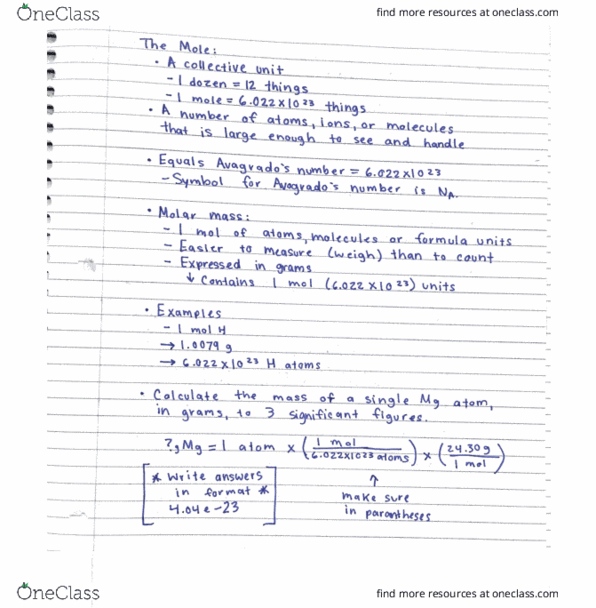 OneClass
find more resources at oneclass.com
The Mole:
• A collective unit
- 1 dozen = 12 things
- 1 mole = 6.022 x 10 23 things
• A number of atoms, ions, or molecules
that is large enough to see and handle
• Equals Avagrado's number = 6.022 x 10 23
- Symbol for Avogrado's number is NA.
• Molar mass:
- 1 mol of atoms, molecules or formula units
- Easier to measure (weigh) than to count
- Expressed in grams
↓ Contains 1 mol (6.022 x 10 23) units
• Examples
- 1 mol H
→ 1.0079 g
→ 6.022 x 10 23 H atoms
• Calculate the mass of a single Mg atom,
in grams, to 3 significant figures.
?g Mg = 1 atom x (1 mol / 6.022x1023 atoms) x (24.30g / 1 mol)
* Write answers
in format *
4.04e-23
↑
make sure
in parantheses
OneClass
find more resources at oneclass.com